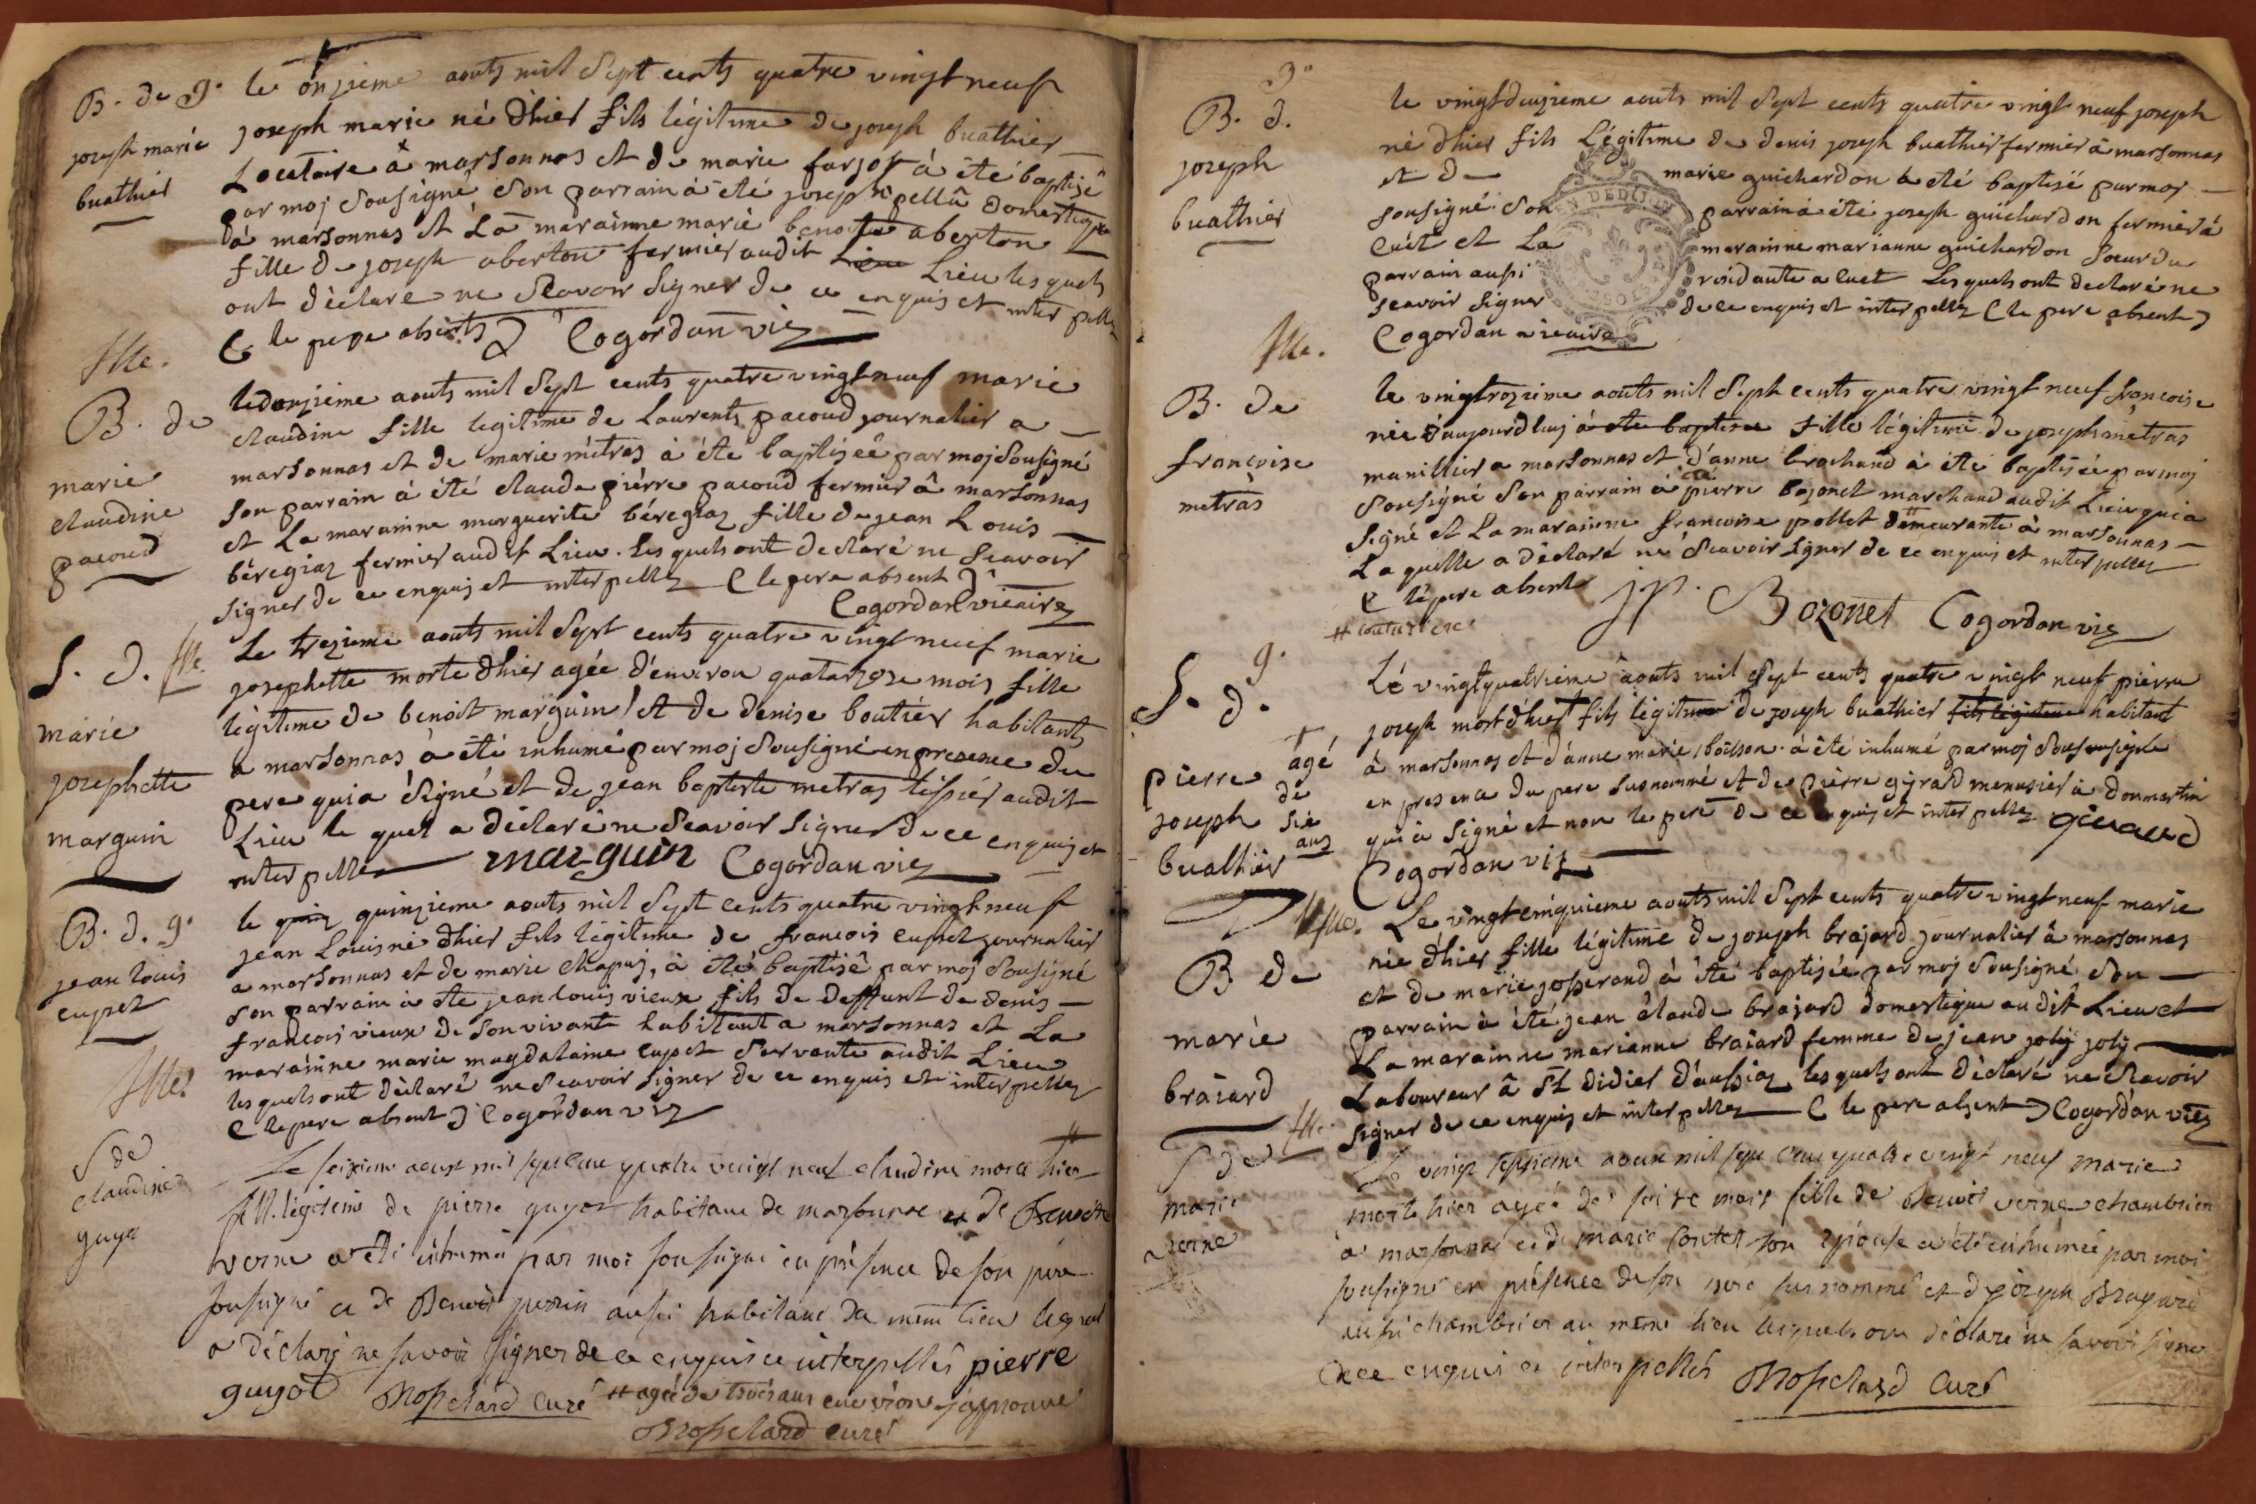 B. de g.
joseph marie
buathier
le onzieme aouts mil Sept cents quatre vingt neuf
joseph marie né d'hier fils légitime de joseph buathier
Locataire à marsonnas et de marie farjot à été baptisé
par moj Sousigné Son parrain à été joseph pellâ domestique
à marsonnas et La marainne marie benoite aberton
fille de joseph aberton fermier audit Lieu Lieu les quels
out déclaré ne Scavoir Signer de ce enquis et interpellez
( le pere absents ) Cogordan viz
fllc.
B. de
marie
claudine
pacoud
le douzieme aouts mil Sept cents quatre vingt neuf marie
claudine fille legitime de Laurents pacoud journalier a
marsonnas et de marie métras à été baptisée par moj Sousigné
Son parrain à été claude piérre pacoud fermier â marsonnas
et La marainne marguerite béregiaz fille de jean Louis
béregiaz fermier audit Lieu. les quels ont declaré ne Scavoir
signer de ce enquis et interpellez ( le pere absent )
Cogordan vicaire
S. d. fllc.
marie
josephette
marguin
Le trezieme aouts mil Sept cents quatre vingt neuf marie
josephette morte d'hier agée d'environ quatorze mois fille
légitime de benoit marguin et de denise boutier habitants
a marsonnas à été inhumé par moj Sousigné en presence du
pere qui a Signé et de jean baptiste metras tissier audit
Lieu le quel a déclaré ne Scavoir Signer de ce enquis et
interpellez marguin Cogordan viz
B. d. g.
jean louis
cupet
le quinzieme aouts mil Sept cents quatre vingt neuf
jean Louis né d'hier fils légitime de francois cupet journalier
a marsonnas et de marie chapuj, à été baptisé par moj Sousigné
Son parrain à été jean louis vieux fils de deffunt de denis
francois vieux de Son vivant habitant a marsonnas et La
marainne marie magdalaine cupet Servante audit Lieu
les quels ont déclaré ne Scavoir Signer de ce enquis et interpellez
( le pere absent ) Cogordan viz
fllc.
S de
claudine
guyot
Le seizieme aoust mil sept cent quatre vingt neuf claudine morte hier #
fille légitime de pierre guyot habitant de marsonnas et de Benoite
verne a été inhumée par moi soussigné en présence de son père
soussigné et de Benoit perrin aussi habitant du même lieu lequel
a déclaré ne savoir signer de ce enquis et interpellés pierre
guyot Mosselard curé # agée de trois ans environ j'approuve
Mosselard curé
g.
B. d.
joseph
buathier
le vingt deuzieme aouts mil Sept cents quatre vingt neuf joseph
né d'hier fils Légitime de denis joseph buathier fermier à marsonnas
et de marie guichardon à été baptisé par moj
sousigné. Son parrain à été joseph guichardon fermier à
cuét et La marainne marianne guichardon Soeur du
parrain aussi residante a cuet Les quels ont declaré ne
scavoir signer de ce enquis et interpellez ( le pere absent )
Cogordan vicaire
fllc.
B. de
francoise
metras
le vingt troizieme aouts mil Sept cents quatre vingt neuf francoise
née d'aujourd'huj à été baptisée fille légitime de joseph métras
manillier a marsonnas et d'anne brochand à été baptisée par moj
Sousigné Son parrain à été pierre bozonet marchand audit Lieu qui a
Signé et La marainne francoise pollet # demeurante à marsonnas
La quelle a déclaré ne Scavoir Signer de ce enquis et interpellez
( le pere absent
# couturiere
jp. Bozonet Cogordan viz
g.
S. d.
pierre
joseph
buathier
agé
de
six
ans
Lé vingt quatrieme aouts mil Sept cents quatre vingt neuf pierre
joseph mort d'hier fils légitime de joseph buathier fils légitime habitant
à marsonnas et d'anne marie boisson. à été inhumé par moj Sousigné
en presence du pere susnommé et de pierre girard menusier à donmartin
qui à Signé et non le pere de ce enquis et interpellez giraud
Cogordan viz
fllc.
B de
marie
braiard
Le vingt cinquieme aouts mil Sept cents quatre vingt neuf marie
née d'hier fille légitime de joseph brajard journalier à marsonnas
et de marie josserand à été baptisée par moj Sousigné Son
parrain à été jean claude brajard domestique audit Lieu et
La marainne marianne braiard femme de jean joly joly
Laboureur â St didier d'aussiaz les quels ont déclaré ne Scavoir
signer de ce enquis et interpellez ( le pere absent ) Cogordan viz
fllc.
S de
marie
verne
Le vingt septieme aoust mil sept cent quatre vingt neuf marie
morte hier agée de seize mois fille de Benoit verne chambrier
a marsonnas et de marie son épouse a été inhumée par moi
soussigné en présence de son père susnommé et de joseph
aussi chambrier au même lieu lesquels ont déclaré ne savoir signer
de ce enquis et interpellés Mosselard Curé